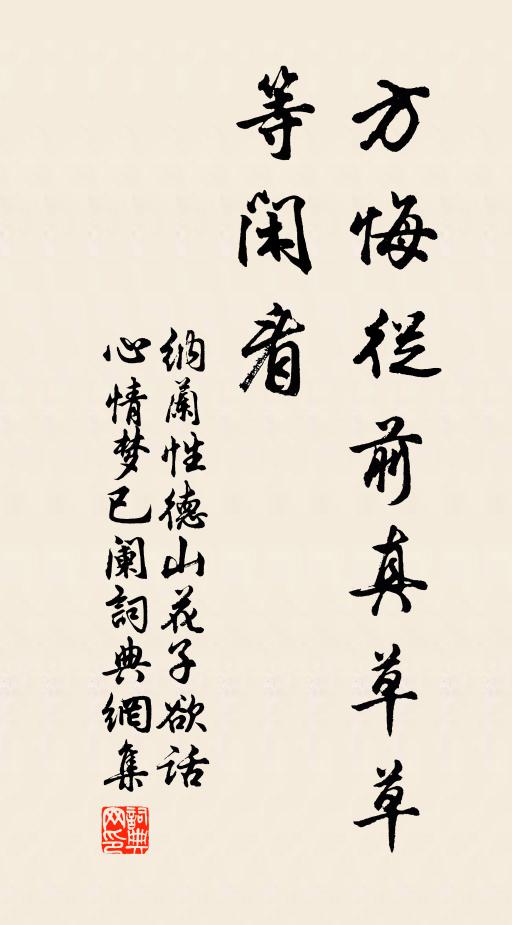 方悔從前真草草
等閑看
納蘭性德山花子欲話
心情梦已闌詞典網集
詞典网印